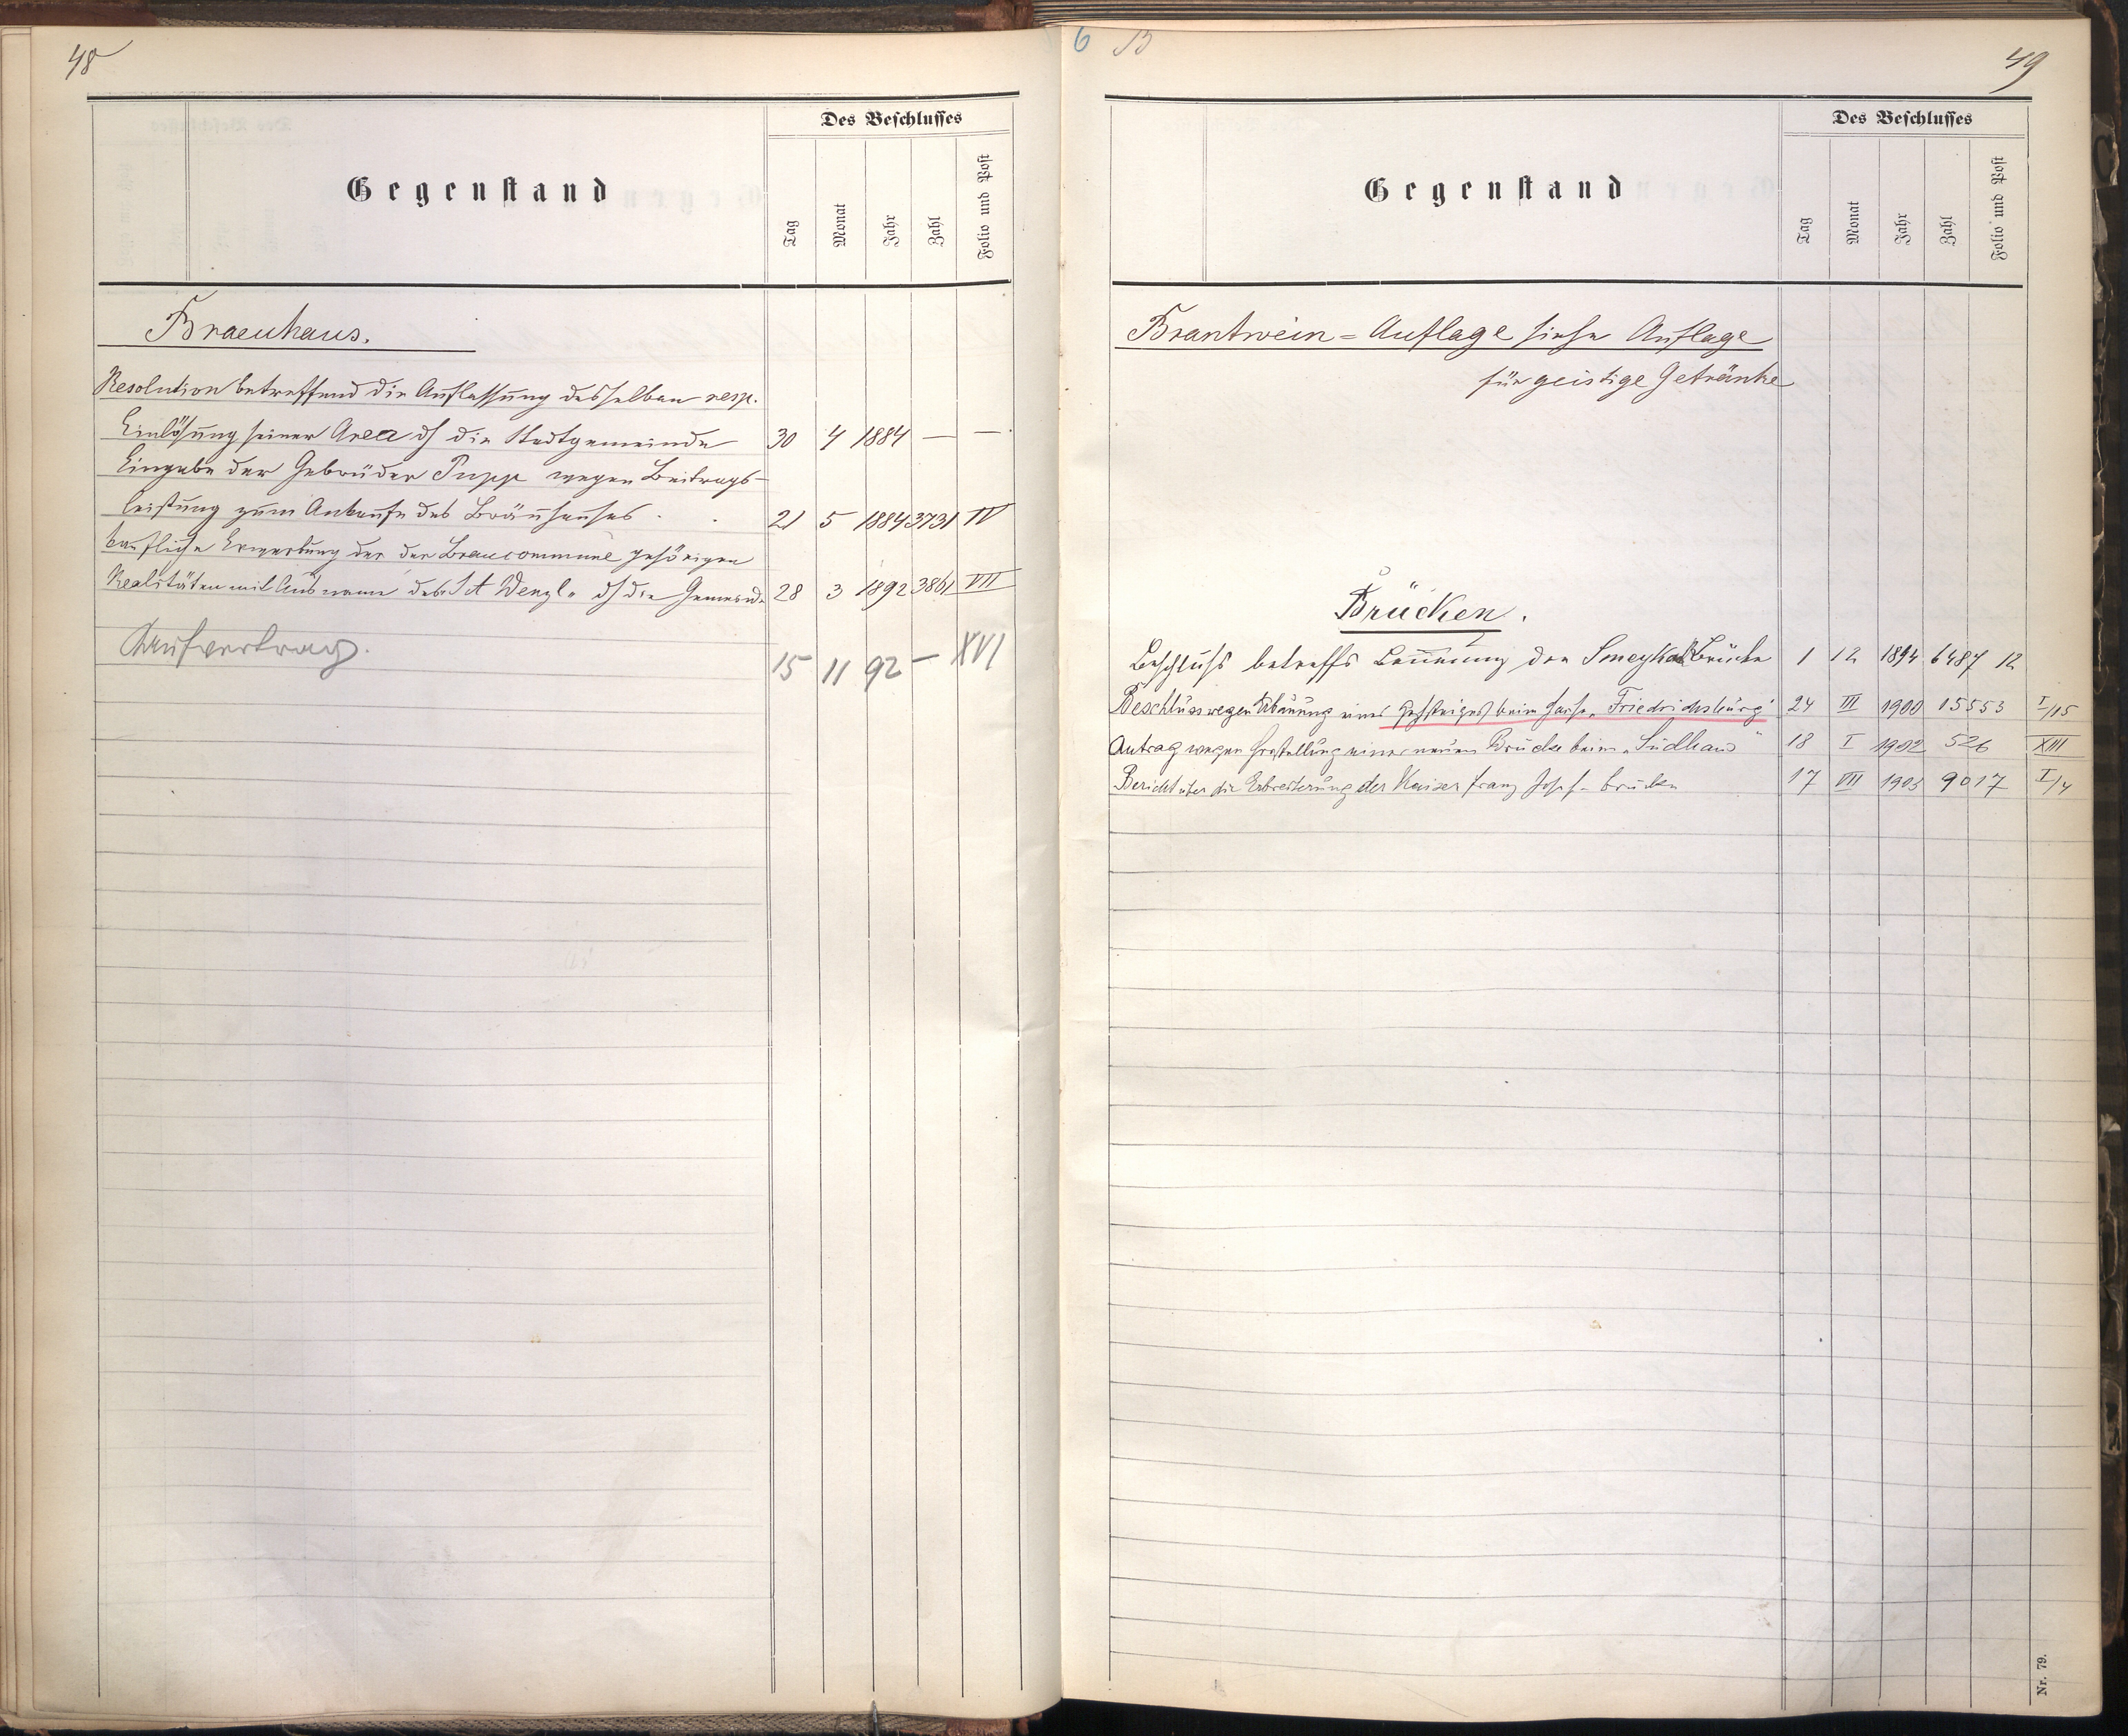 48
Gegenstand
Des Beschlusses
Tag
Monat
Jahr
Zahl
Folio und Post
Braeuhaus.
Resolution betreffend die Auflassung desselben resp.
Einlösung seiner Area dh die Stadtgemeinde 30 4 1884 — —
Eingabe der Gebrüder Pupp wegen Beitrags-
leistung zum Ankaufe des Bräuhauses. 21 5 1884 3731 IV
Käufliche Erwerbung der der Braucommune gehörigen
Realitäten mit Ausname des "St Wenzl" dh die Gemeinde 28 3 1892 3861 VII
Kaufvertrag. 15 11 92 — XVI
6 B
49
Gegenstand
Des Beschlusses
Tag
Monat
Jahr
Zahl
Folio und Post
Brantwein=Auflage siehe Auflage
für geistige Getränke
Brücken.
Beschluss betreffs Benennung der Smeykal Brücke 1 12 1894 6487 12
Beschluss wegen Erbauung eines Gehsteiges beim Hause "Friedrichsburg" 24 III 1900 15553 I/15
Antrag wegen Herstellung einer neuen Brücke beim "Südhaus" 18 I 1902 526 XIII
Bericht über die Erbreiterung der Kaiser Franz Josef-brücke 17 VII 1903 9017 I/4
Nr. 79.